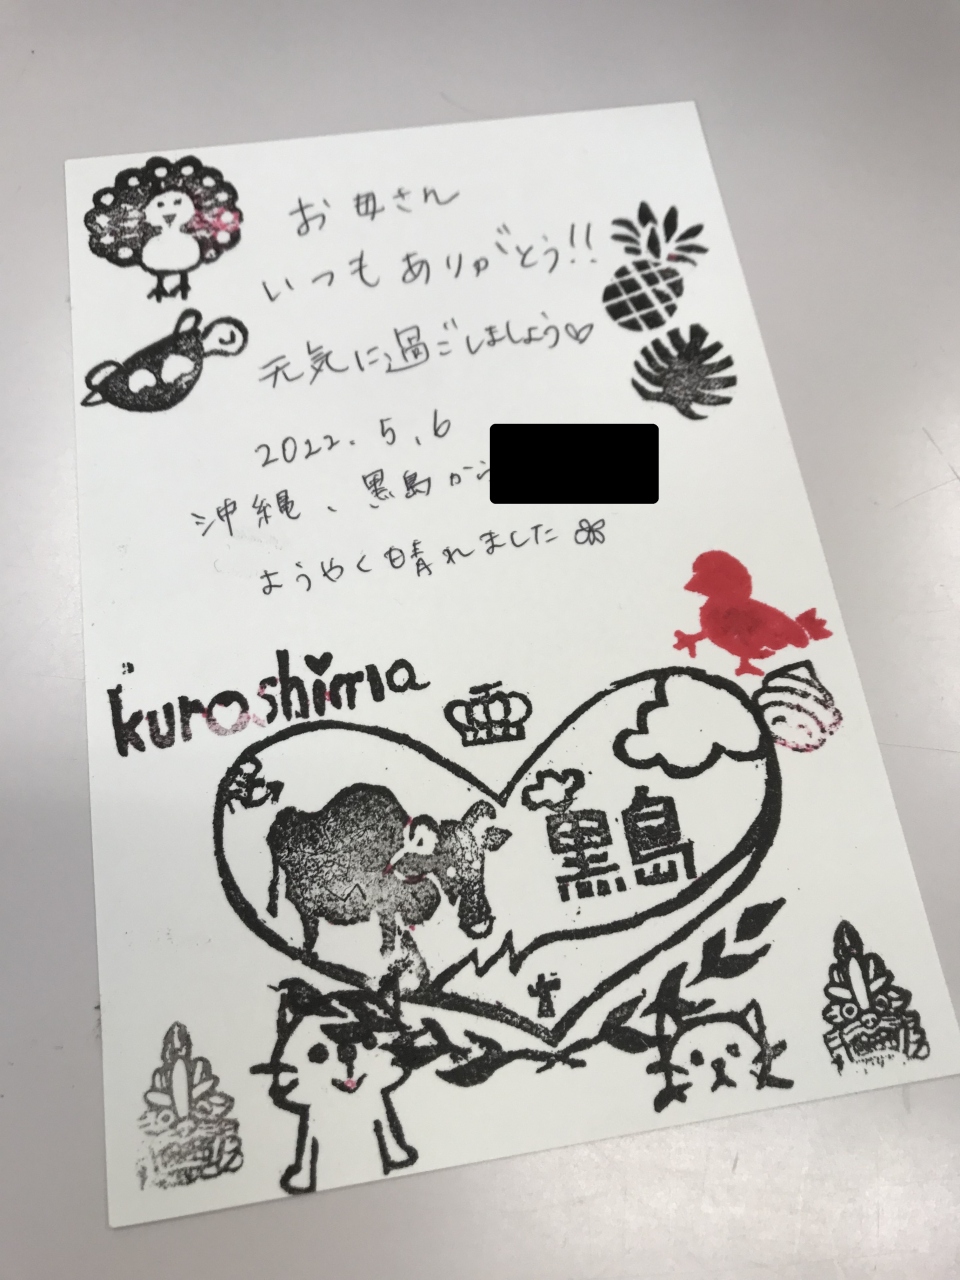 お母さん
いつもありがとう!!
元気に過ごしましょう♡
2022.5.6
沖縄、黒島から
ようやく晴れました
kuroshima
黒島